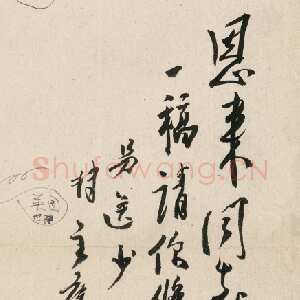 恩来同志
一稿請你修
另送少
主席
Shufawang.CN